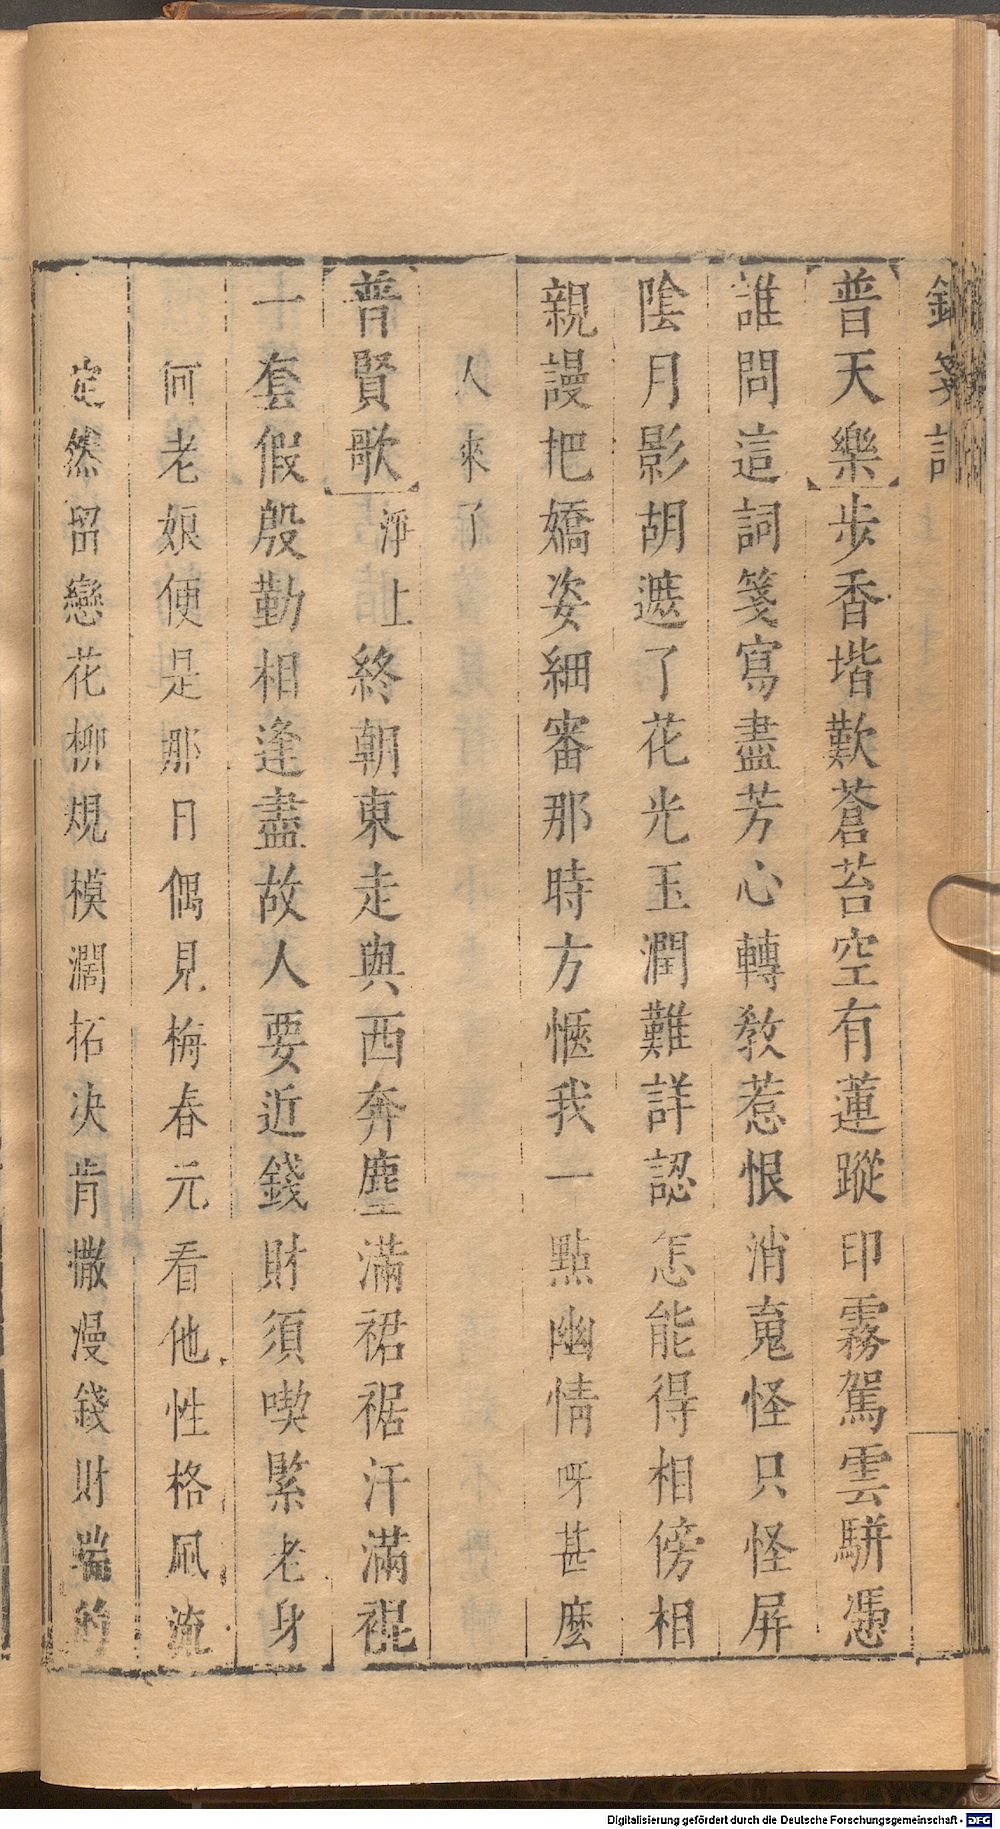 釵箋記
普天樂步香堦歎蒼苔空有蓮蹤印霧駕雲駢憑
誰問這詞箋寫盡芳心轉教惹恨消䰟怪只怪屏
陰月影胡遮了花光玉潤難詳認怎能得相傍相
親謾把嬌姿細審那時方愜我一點幽情呀甚麼
人來了
普賢歌淨上終朝東走與西奔塵滿裙裾汗滿裩
一套假殷勤相逢盡故人要近錢財須喫緊老身
何老娘便是那日偶見梅春元看他性格風流
定然留戀花柳規模濶拓决肯撒漫錢財端的
Digitalisierung gefördert durch die Deutsche Forschungsgemeinschaft - DFG